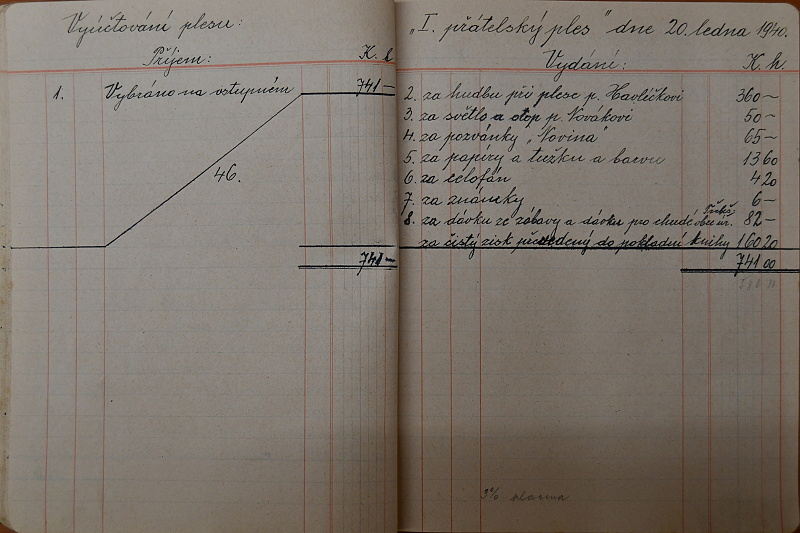 Vyúčtování plesu:
Příjem: K. h
1. Vybráno na vstupném 741 —
46.
741 —
„I. přátelský ples" dne 20. ledna 1940.
Vydání: K. h.
2. za hudbu při plese p. Havlíčkovi 360 —
3. za světlo a otop p. Novákovi 50 —
4. za pozvánky „Novina" 65 —
5. za papíry a tužku a barvu 13 60
6. za celofán 4 20
7. za známky 6 —
8. za dávku ze zábavy a dávku pro chudé 82 —
za čistý zisk převedený do pokladní knihy 160 20
741 00
3%